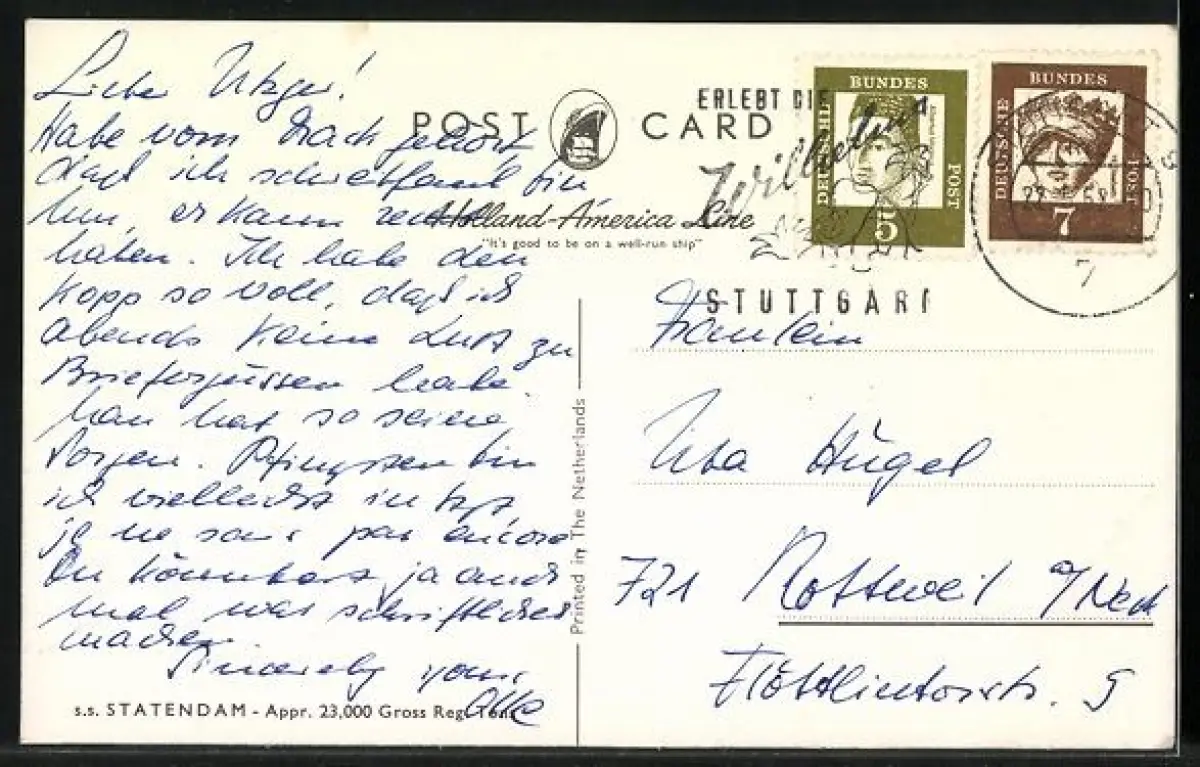 Liebe
Habe vom gehört
daß ich schreibfaul bin
Nun, er kann recht
haben. Ich habe den
Kopf so voll, daß ich
abends keine Lust zu
Briefergüssen habe.
Man hat so seine
Sorgen. Pfingsten bin
ich vielleicht in
je ne sais pas encore
Du könntest ja auch
mal was schriftliches
machen.
Sincerely yours
s.s. STATENDAM - Appr. 23,000 Gross Reg. Tons
POST CARD
Holland-America Line
"It's good to be on a well-run ship"
Printed in The Netherlands
ERLEBT DIE
Wilhelma
STUTTGART
DEUTSCHE BUNDES POST
5
DEUTSCHE BUNDES POST
7
7
Fräulein
Uta Hügel
721 Rottweil a/Neck
9